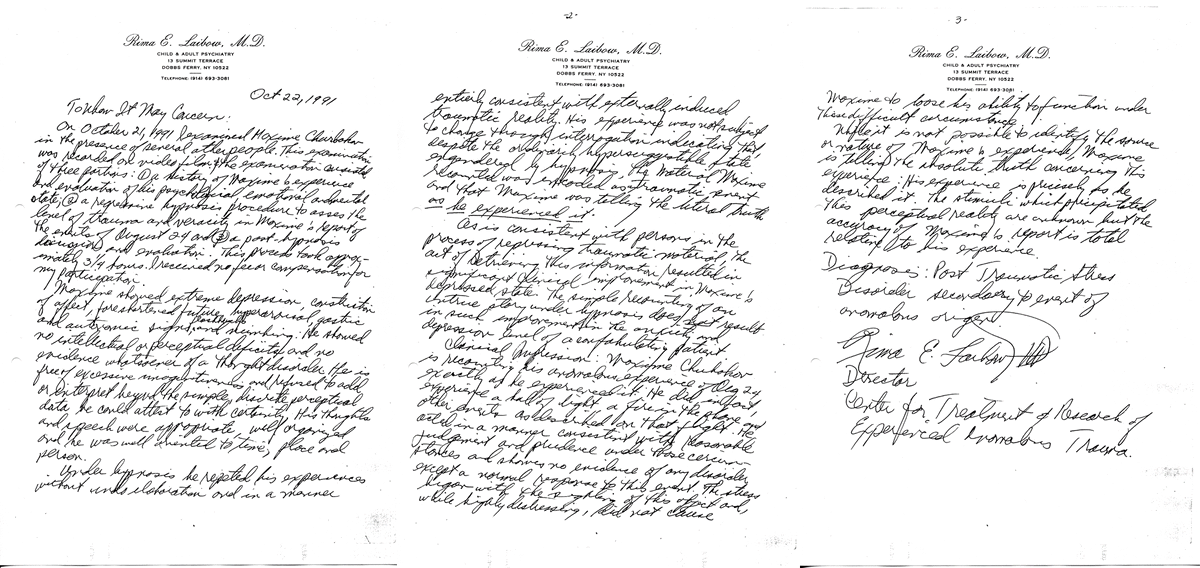 Rima E. Laibow, M.D.
CHILD & ADULT PSYCHIATRY
13 SUMMIT TERRACE
DOBBS FERRY, NY 10522
TELEPHONE: (914) 693-3081
Oct 22, 1991
To Whom It May Concern:
On October 21, 1991 I examined Maxime Churbakov
in the presence of several other people. This examination
was recorded on video film & the examination consisted
of three portions: ① a history of Maxime's experience
and evaluation of his psychological, emotional and mental
state; ② a regressive hypnosis procedure to asses the
level of trauma and veracity in Maxime's report of
the events of August 24 and ③ a post-hypnosis
discussion and evaluation. This process took approx-
imately 3 1/4 hours. I received no fee or compensation for
my participation.
Maxime showed extreme depression, constriction
of affect, foreshortened future, hyperarousal, gastric
and autonomic signs, and numbing. He showed
no intellectual or perceptual deficits and no
evidence whatsoever of a thought disorder. He is
free of excessive imaginativeness and refused to add
or interpret beyond the simple, discrete perceptual
data he could attest to with certainty. His thoughts
and speech were appropriate, well organized
and he was well oriented to time, place and
person.
Under hypnosis he repeated his experiences
without undue elaboration and in a manner
-2-
Rima E. Laibow, M.D.
CHILD & ADULT PSYCHIATRY
13 SUMMIT TERRACE
DOBBS FERRY, NY 10522
TELEPHONE: (914) 693-3081
entirely consistent with externally induced
traumatic reality. His experience was not subject
to change through interrogation indicating that,
despite the ordinarily hypersuggestible state
engendered by hypnosis, the material Maxime
recounted was encoded as traumatic event
and that Maxime was telling the literal truth
as he experienced it.
As is consistent with persons in the
process of repressing traumatic material, the
act of retrieving this information resulted in
significant clinical improvement in Maxime's
depressed state. The simple recounting of an
untrue story under hypnosis does not result
in such improvement in the anxiety and
depression level of a confabulating patient
Clinical Impression: Maxime Churbakov
is recounting his anomalous experience of Aug 24
exactly as he experienced it. He did, in fact,
experience a ball of light, a fire in the phone and
other events as described on that flight. He
acted in a manner consistent with reasonable
judgement and prudence under those circum-
stances and shows no evidence of any disorder
except a normal response to this event. The stress
began with the sighting of this object and,
while highly distressing, did not cause
3-
Rima E. Laibow, M.D.
CHILD & ADULT PSYCHIATRY
13 SUMMIT TERRACE
DOBBS FERRY, NY 10522
TELEPHONE: (914) 693-3081
Maxime to loose his ability to function under
this difficult circumstance.
While it is not possible to identify the source
or nature of Maxime's experience, Maxime
is telling the absolute truth concerning this
experience: His experience is precisely as he
described it. The stimuli which precipitated
this perceptual reality are unknown but the
accuracy of Maxime's report is total
relative to his experience.
Diagnoses: Post Traumatic Stress
Disorder secondary to event of
anomalous origen.
Rima E. Laibow MD
Director
Center for Treatment & Research of
Experienced Anomalous Trauma.